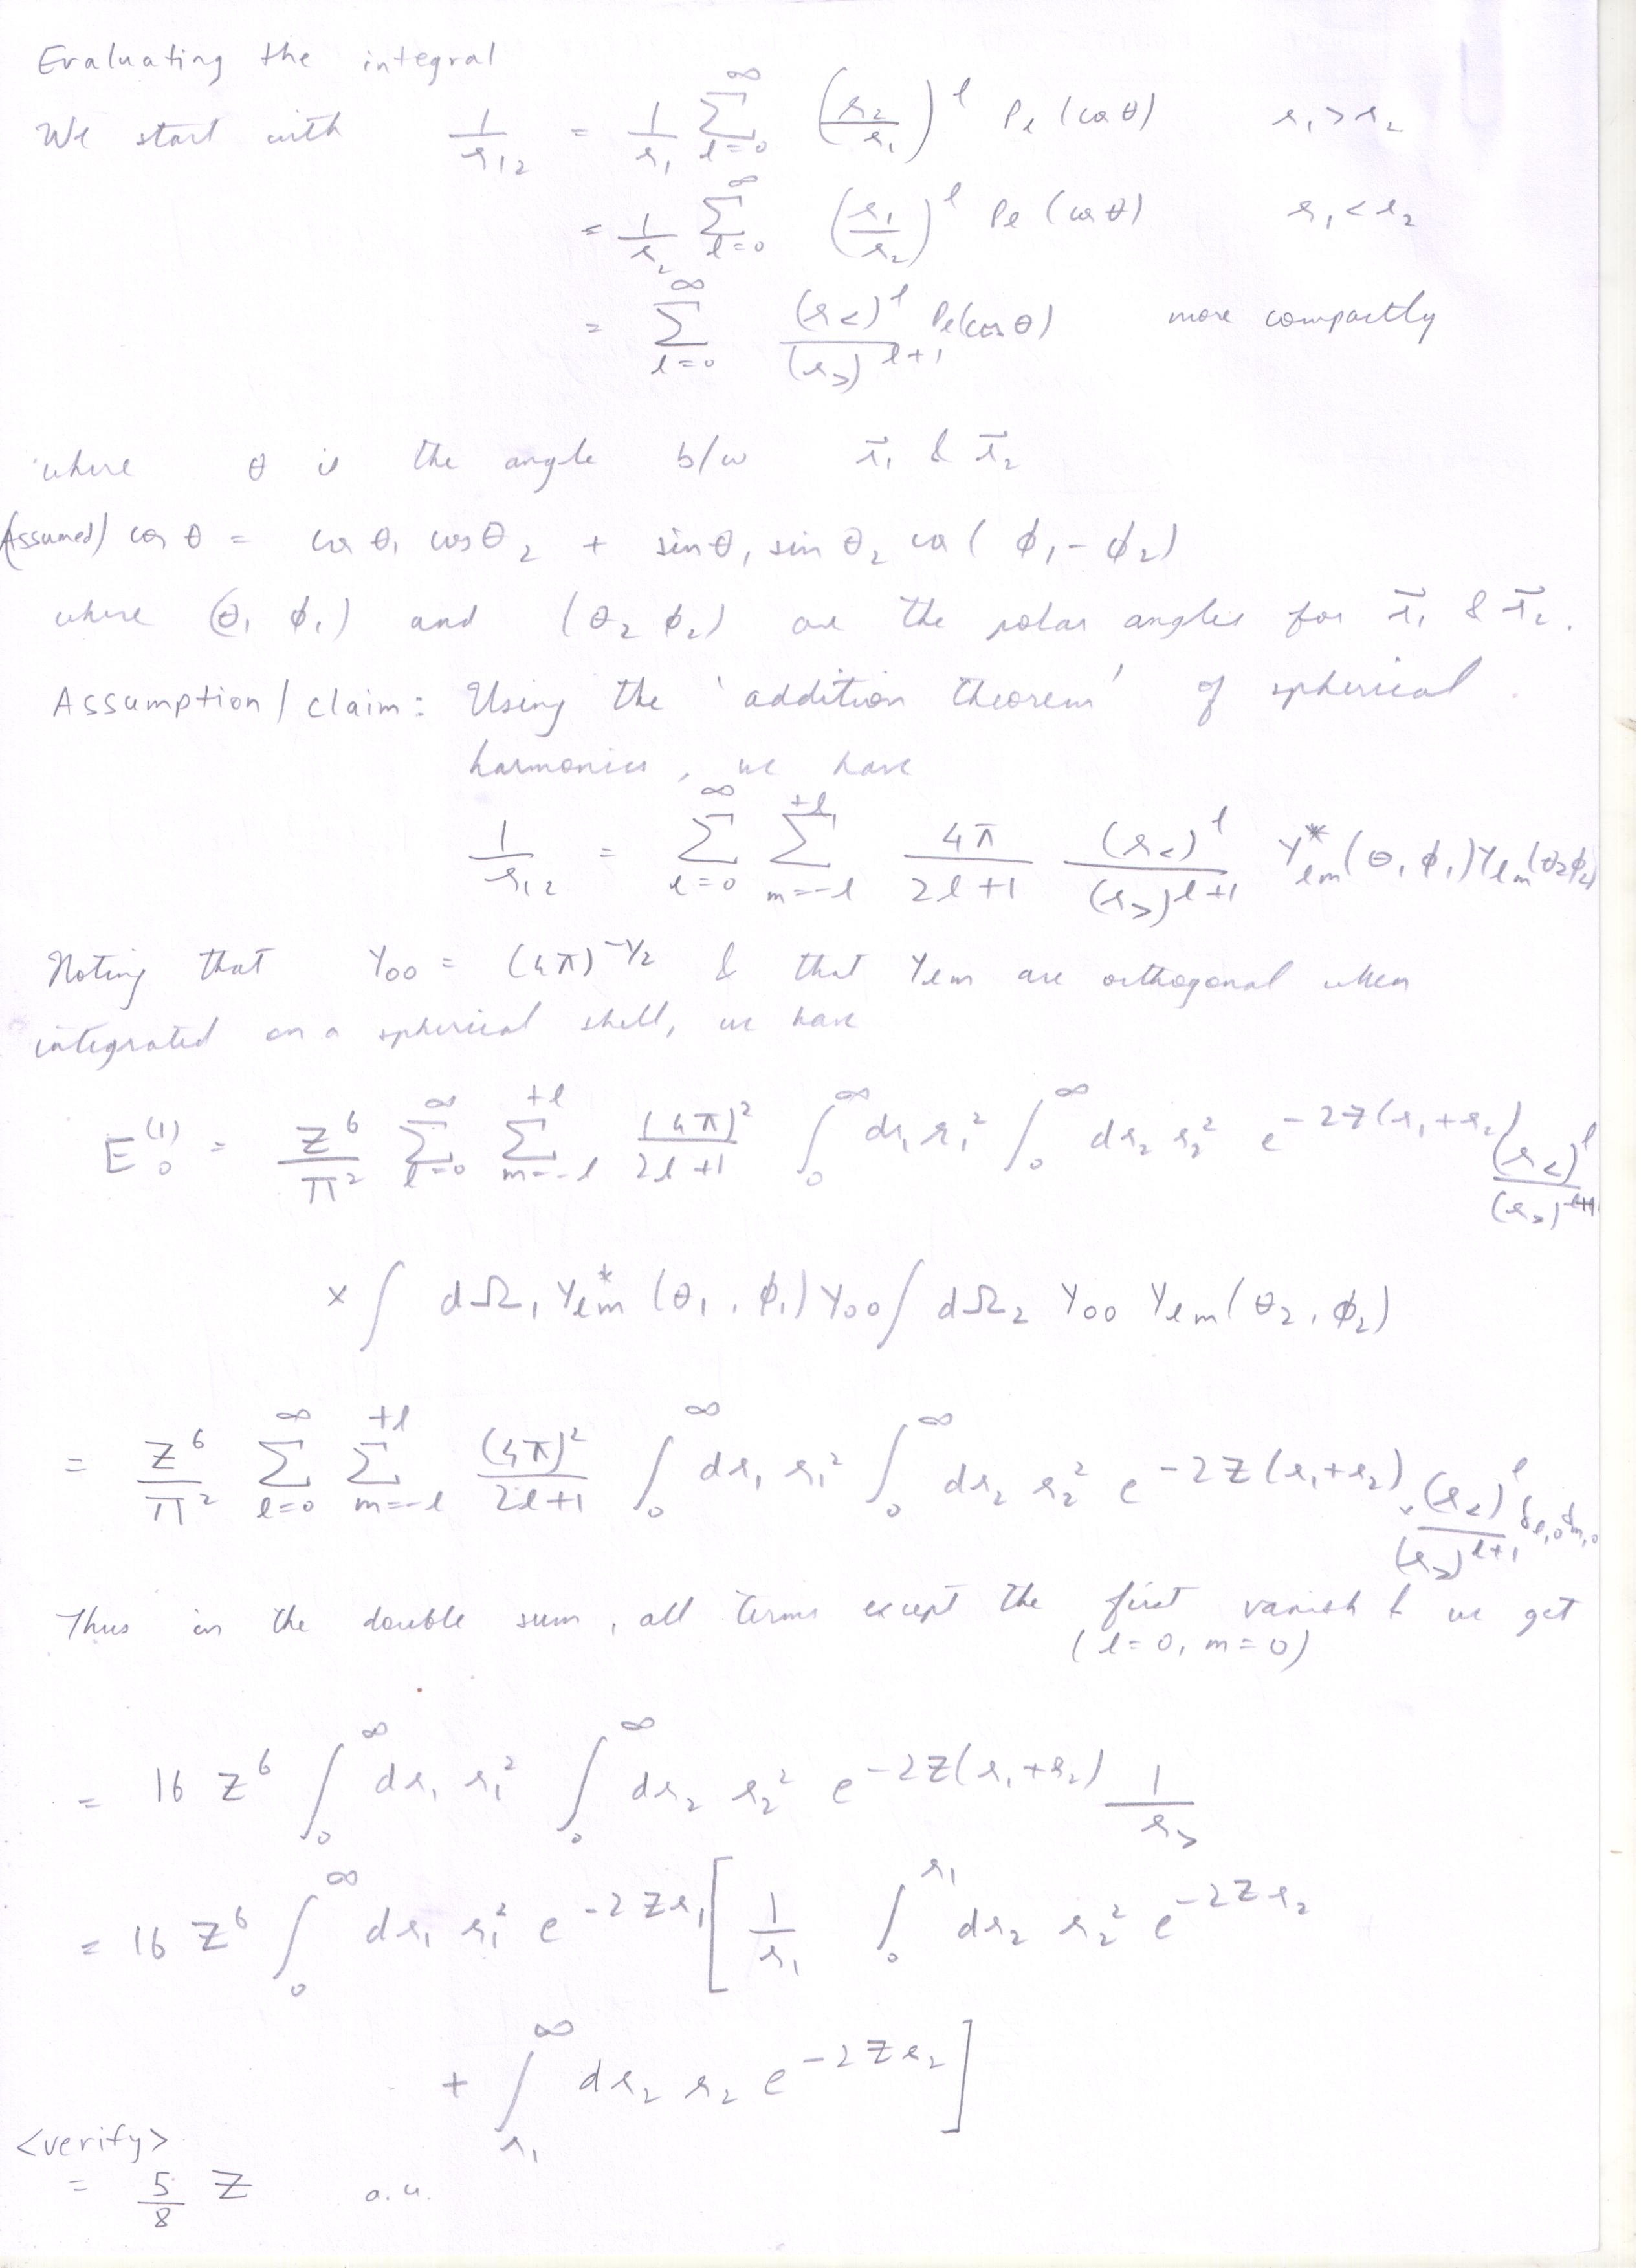 Evaluating the integral
We start with 1/r₁₂ = 1/r₁ ∑_{l=0}^{∞} (r₂/r₁)^l Pₗ(cosθ) r₁>r₂
= 1/r₂ ∑_{l=0}^{∞} (r₁/r₂)^l Pₗ(cosθ) r₁<r₂
= ∑_{l=0}^{∞} (r<)^l/(r>)^{l+1} Pₗ(cosθ) more compactly
where θ is the angle b/w r⃗₁ & r⃗₂
(Assumed) cosθ = cosθ₁ cosθ₂ + sinθ₁ sinθ₂ cos(φ₁-φ₂)
where (θ₁ φ₁) and (θ₂ φ₂) are the polar angles for r⃗₁ & r⃗₂.
Assumption/claim: Using the 'addition theorem' of spherical
harmonics, we have
1/r₁₂ = ∑_{l=0}^{∞} ∑_{m=-l}^{+l} 4π/(2l+1) (r<)^l/(r>)^{l+1} Y*_{lm}(θ₁ φ₁) Y_{lm}(θ₂ φ₂)
Noting that Y₀₀ = (4π)^{-1/2} & that Y_{lm} are orthogonal when
integrated on a spherical shell, we have
E₀^{(1)} = Z⁶/π² ∑_{l=0}^{∞} ∑_{m=-l}^{+l} (4π)²/(2l+1) ∫₀^∞ dr₁ r₁² ∫₀^∞ dr₂ r₂² e^{-2Z(r₁+r₂)} (r<)^l/(r>)^{l+1}
× ∫ dΩ₁ Y*_{lm}(θ₁, φ₁) Y₀₀ ∫ dΩ₂ Y₀₀ Y_{lm}(θ₂, φ₂)
= Z⁶/π² ∑_{l=0}^{∞} ∑_{m=-l}^{+l} (4π)²/(2l+1) ∫₀^∞ dr₁ r₁² ∫₀^∞ dr₂ r₂² e^{-2Z(r₁+r₂)} × (r<)^l/(r>)^{l+1} δ_{l,0} δ_{m,0}
Thus in the double sum, all terms except the first vanish & we get
(l=0, m=0)
= 16 Z⁶ ∫₀^∞ dr₁ r₁² ∫₀^∞ dr₂ r₂² e^{-2Z(r₁+r₂)} 1/r>
= 16 Z⁶ ∫₀^∞ dr₁ r₁² e^{-2Zr₁} [ 1/r₁ ∫₀^{r₁} dr₂ r₂² e^{-2Zr₂}
+ ∫_{r₁}^∞ dr₂ r₂ e^{-2Zr₂} ]
<verify>
= 5/8 Z a.u.